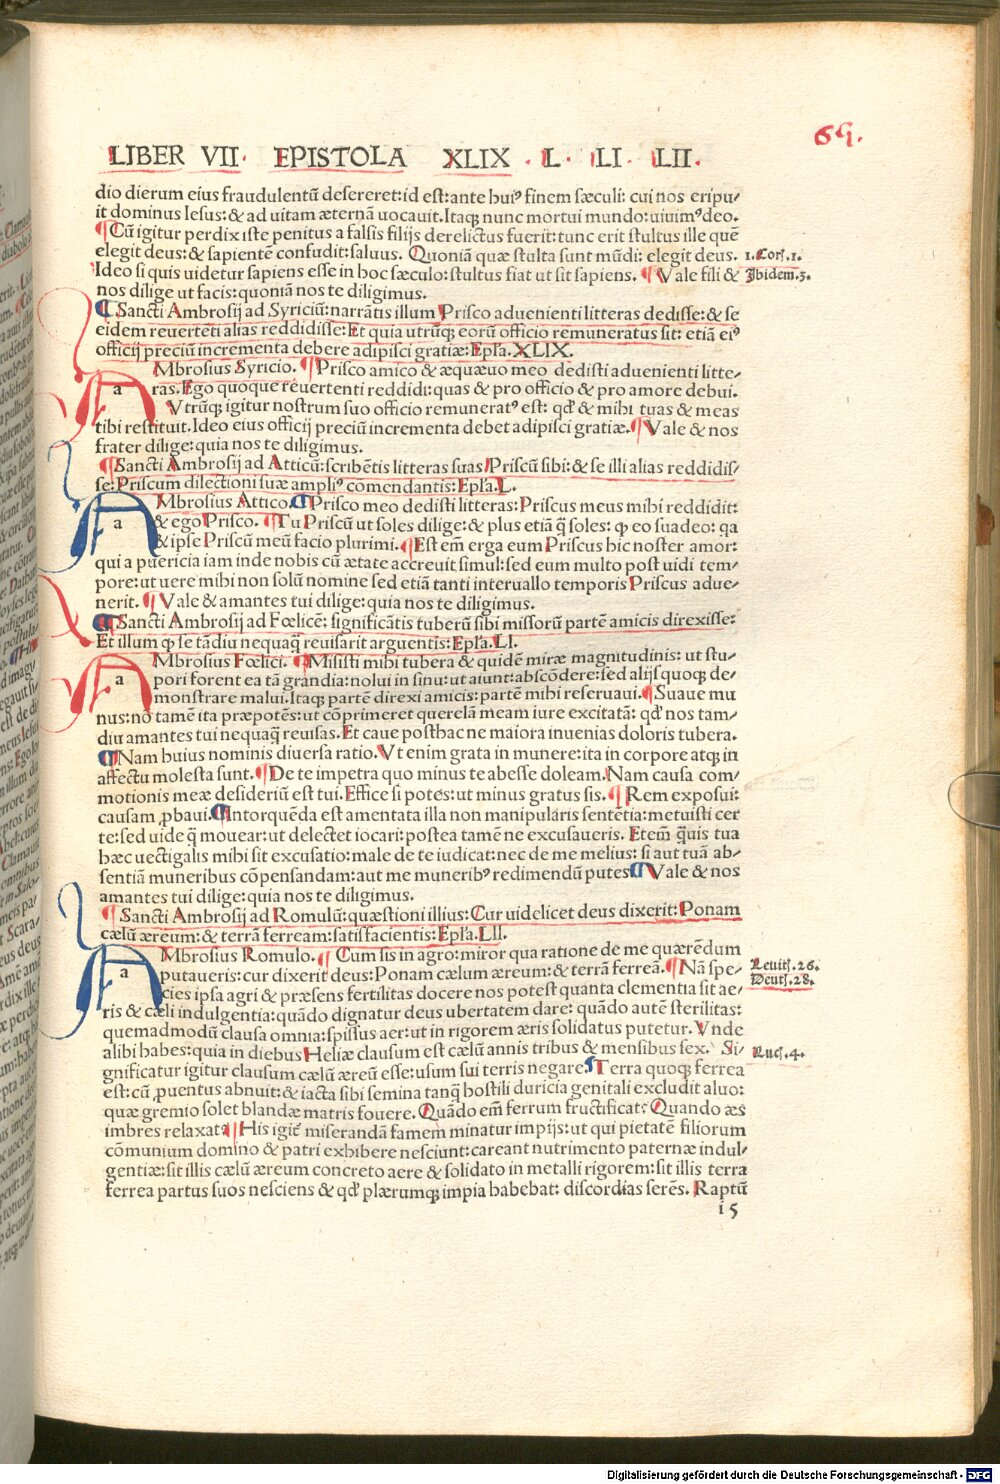 69.
LIBER VII. EPISTOLA XLIX . L . LI . LII .
dio dierum eius fraudulentū desereret: id est: ante huiꝰ finem sæculi: cui nos eripu-
it dominus Iesus: & ad uitam æternā uocauit. Itaqꝫ nunc mortui mundo: uiuimꝰ deo.
¶ Cū igitur perdix iste penitus a falsis filijs derelictus fuerit: tunc erit stultus ille quē
elegit deus: & sapientē confudit: saluus. Quoniā quæ stulta sunt mūdi: elegit deus. 1. Cor. 1.
Ideo si quis uidetur sapiens esse in hoc sæculo: stultus fiat ut sit sapiens. ¶ Vale fili & Ibidem. 3.
nos dilige ut facis: quoniā nos te diligimus.
¶ Sancti Ambrosij ad Syriciū: narrātis illum Prisco aduenienti litteras dedisse: & se
eidem reuertēti alias reddidisse: Et quia utrūqꝫ eorū officio remuneratus sit: etiā eiꝰ
officij preciū incrementa debere adipisci gratiæ: Epl̄a. XLIX.
a Mbrosius Syricio. ¶ Prisco amico & æquæuo meo dedisti aduenienti litte-
ras. Ego quoque reuertenti reddidi: quas & pro officio & pro amore debui.
Vtrūqꝫ igitur nostrum suo officio remuneratꝰ est: qd̄ & mihi tuas & meas
tibi restituit. Ideo eius officij preciū incrementa debet adipisci gratiæ. ¶ Vale & nos
frater dilige: quia nos te diligimus.
¶ Sancti Ambrosij ad Atticū: scribētis litteras suas Priscū sibi: & se illi alias reddidis-
se: Priscum dilectioni suæ ampliꝰ comendantis: Epl̄a. L.
a Mbrosius Attico. ¶ Prisco meo dedisti litteras: Priscus meus mihi reddidit:
& ego Prisco. ¶ Tu Priscū ut soles dilige: & plus etiā q̄ soles: ꝙ eo suadeo: qa
& ipse Priscū meū facio plurimi. ¶ Est em̄ erga eum Priscus hic noster amor:
qui a puericia iam inde nobis cū ætate accreuit simul: sed eum multo post uidi tem-
pore: ut uere mihi non solū nomine sed etiā tanti interuallo temporis Priscus adue-
nerit. ¶ Vale & amantes tui dilige: quia nos te diligimus.
¶ Sancti Ambrosij ad Fœlicē: significātis tuberū sibi missorū partē amicis direxisse:
Et illum ꝙ se tādiu nequaq̄ reuisarit arguentis: Epl̄a. LI.
a Mbrosius Fœlici. ¶ Misisti mihi tubera & quidē miræ magnitudinis: ut stu-
pori forent ea tā grandia: nolui in sinu: ut aiunt: abscōdere: sed alijs quoqꝫ de-
monstrare malui. Itaqꝫ partē direxi amicis: partē mihi reseruaui. ¶ Suaue mu
nus: nō tamē ita præpotēs: ut cōprimeret querelā meam iure excitatā: qd̄ nos tam-
diu amantes tui nequaq̄ reuisas. Et caue posthac ne maiora inuenias doloris tubera.
¶ Nam huius nominis diuersa ratio. Vt enim grata in munere: ita in corpore atqꝫ in
affectu molesta sunt. ¶ De te impetra quo minus te abesse doleam. Nam causa com-
motionis meæ desideriū est tui. Effice si potes: ut minus gratus sis. ¶ Rem exposui:
causam ꝓbaui. ¶ Intorquēda est amentata illa non manipularis sentētia: metuisti cer
te: sed uide q̄ mouear: ut delectet iocari: postea tamē ne excusaueris. Etem̄ q̄uis tua
hæc uectigalis mihi sit excusatio: male de te iudicat: nec de me melius: si aut tuā ab-
sentiā muneribus cōpensandam: aut me muneribꝰ redimendū putes. ¶ Vale & nos
amantes tui dilige: quia nos te diligimus.
¶ Sancti Ambrosij ad Romulū: quæstioni illius: Cur uidelicet deus dixerit: Ponam
cælū æreum: & terrā ferream: satisfacientis: Epl̄a. LII.
a Mbrosius Romulo. ¶ Cum sis in agro: miror qua ratione de me quærēdum
putaueris: cur dixerit deus: Ponam cælum æreum: & terrā ferreā. ¶ Nā spe- Leuit. 26.
cies ipsa agri & præsens fertilitas docere nos potest quanta clementia sit ae- Deut. 28.
ris & cæli indulgentia: quādo dignatur deus ubertatem dare: quādo autē sterilitas:
quemadmodū clausa omnia: spissus aer: ut in rigorem æris solidatus putetur. Vnde
alibi habes: quia in diebus Heliæ clausum est cælū annis tribus & mensibus sex. Si- Luc. 4.
gnificatur igitur clausum cælū æreū esse: usum sui terris negare. ¶ Terra quoqꝫ ferrea
est: cū ꝓuentus abnuit: & iacta sibi semina tanq̄ hostili duricia genitali excludit aluo:
quæ gremio solet blandæ matris fouere. Quādo em̄ ferrum fructificat? Quando æs
imbres relaxat? ¶ His igit̄ miserandā famem minatur impijs: ut qui pietatē filiorum
cōmunium domino & patri exhibere nesciunt: careant nutrimento paternæ indul-
gentiæ: sit illis cælū æreum concreto aere & solidato in metalli rigorem: sit illis terra
ferrea partus suos nesciens & qd̄ plærumqꝫ impia habebat: discordias serēs. Raptū
i 5
Digitalisierung gefördert durch die Deutsche Forschungsgemeinschaft - DFG